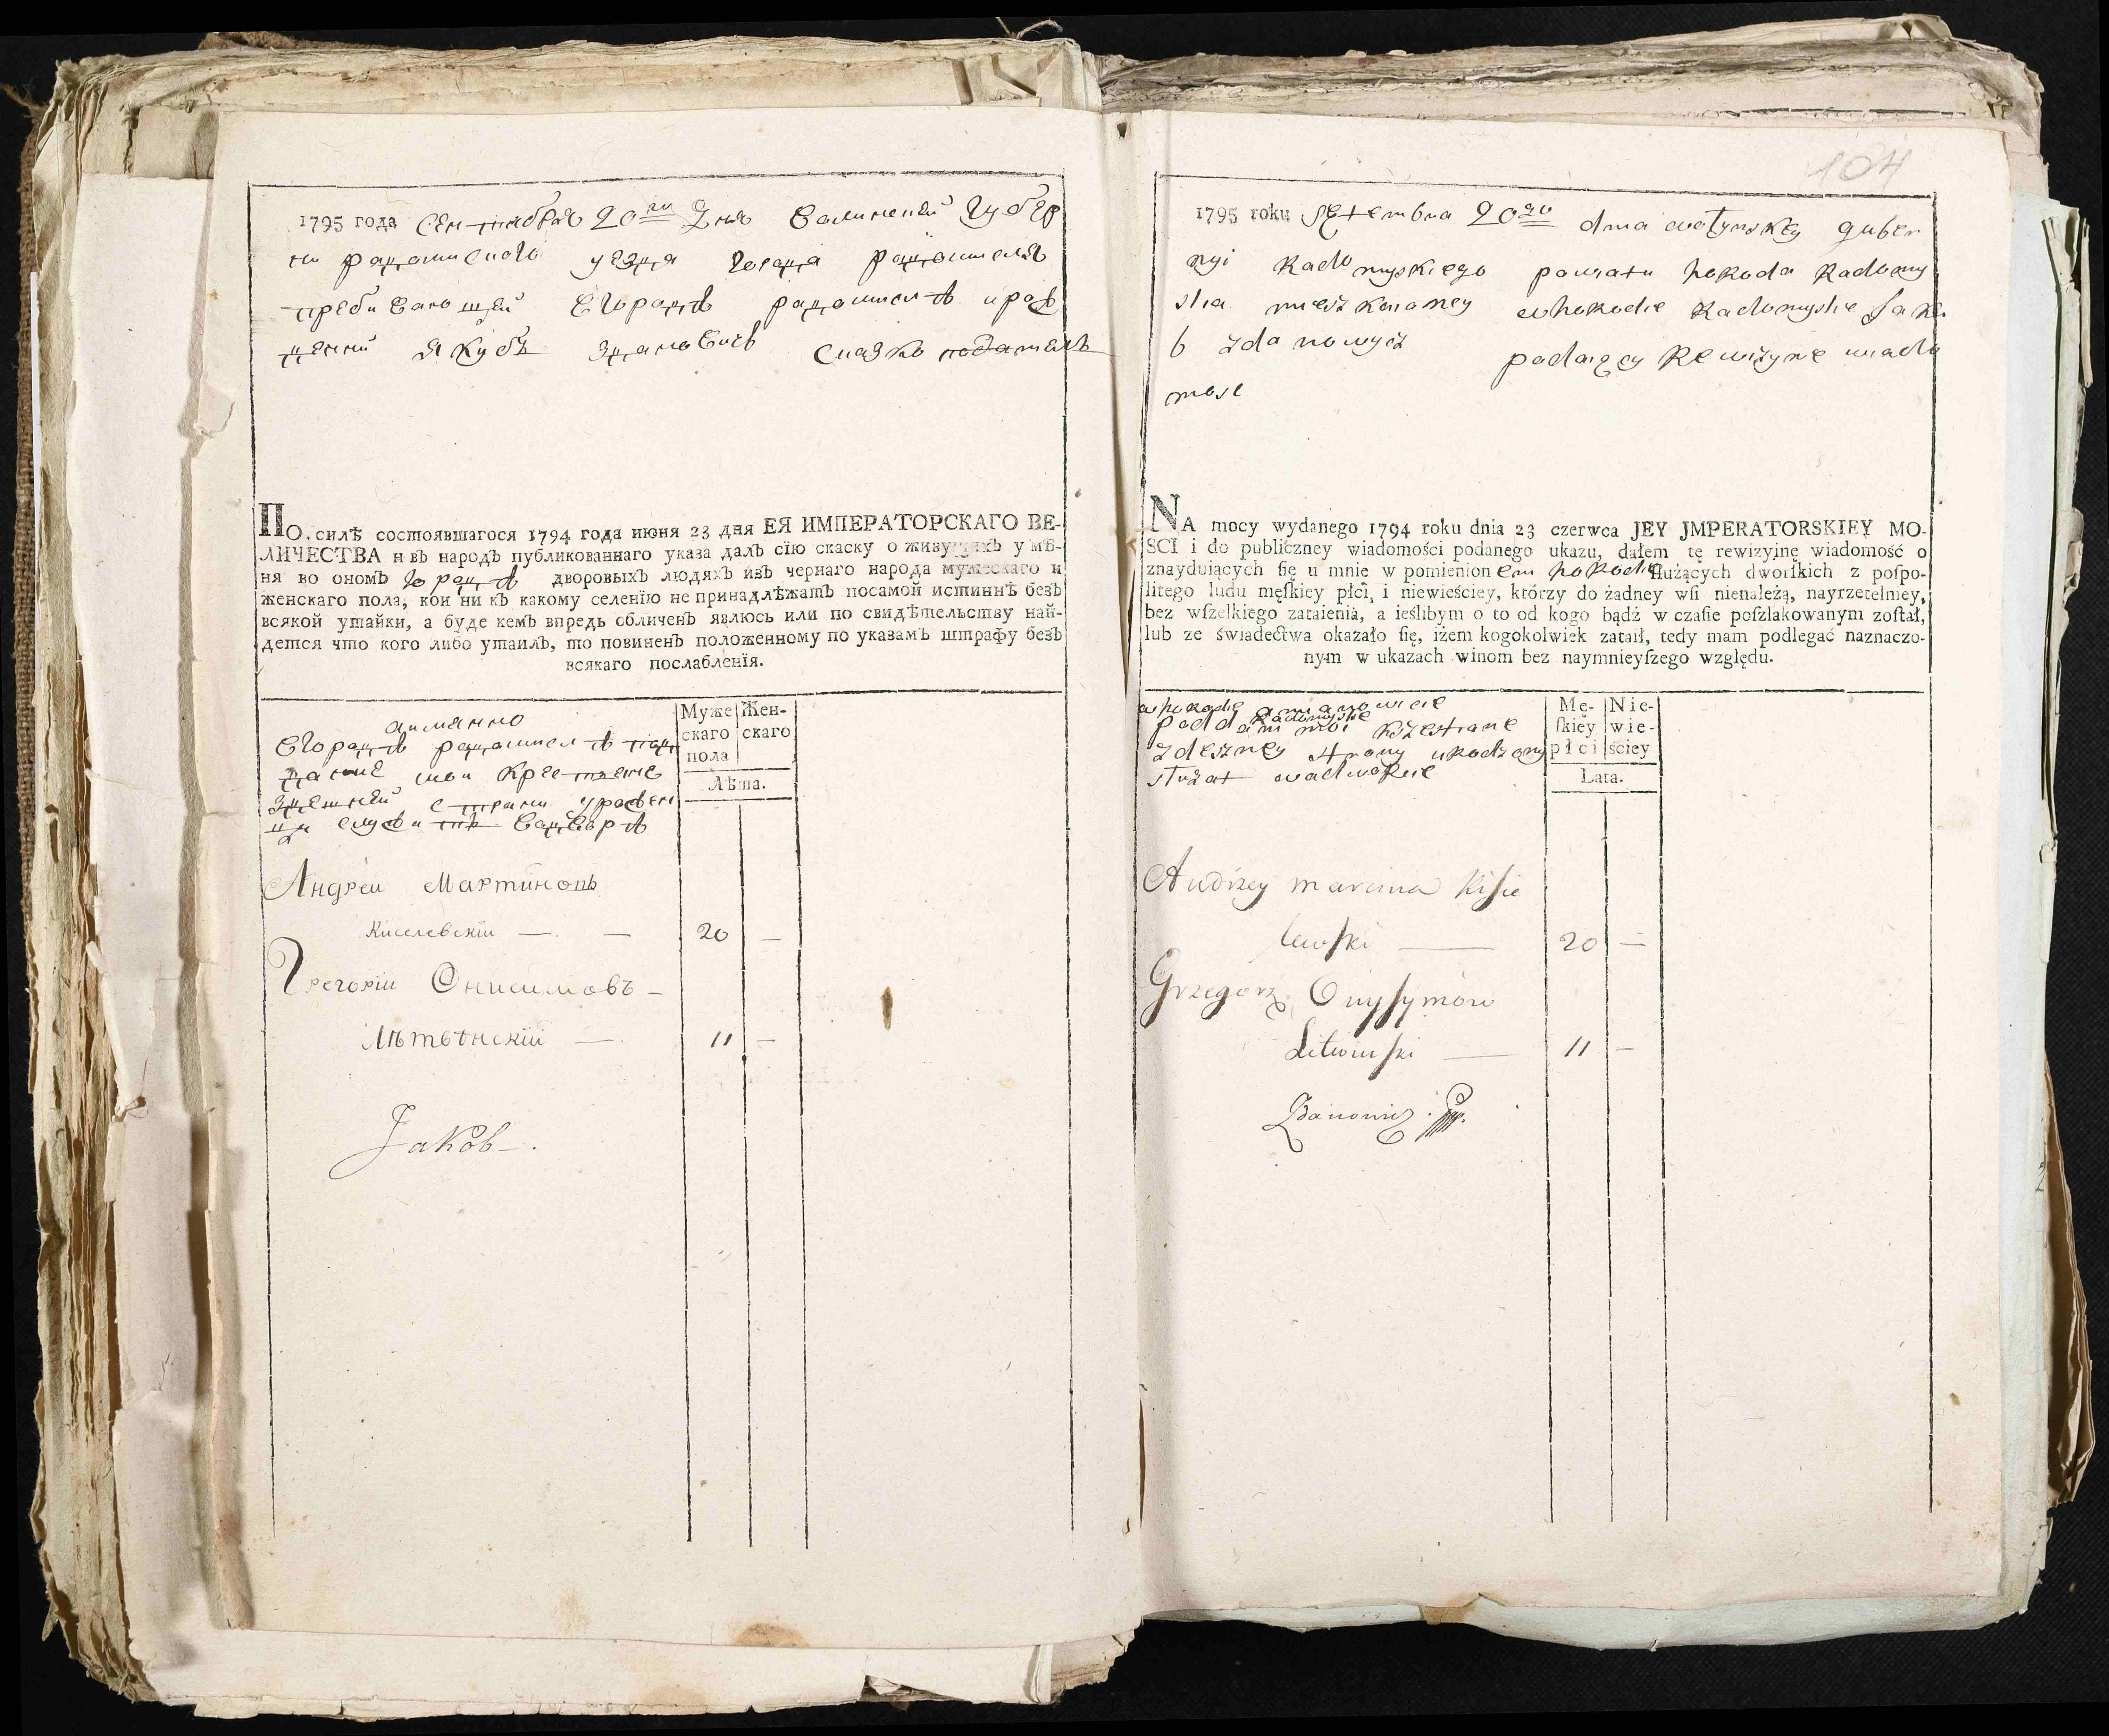 1795 года Сентября 20 го Дня Волинской Губер
ни радомиского уезда города радомисля
пребивающей вгораде радомисле
Якубъ здановичъ сказко
ПО силѣ состоявшагося 1794 года июня 23 дня ЕЯ ИМПЕРАТОРСКАГО ВЕ-
ЛИЧЕСТВА и въ народъ публикованнаго указа далъ сїю скаску о живущихъ у мѣ-
ня во ономъ гораде дворовыхъ людяхъ изъ чернаго народа мужескаго и
женскаго пола, кои ни къ какому селенїю не принадлѣжатъ посамой истиннѣ безъ
всякой утайки, а буде кемъ впредь обличенъ явлюсь или по свидѣтельству най-
дется что кого либо утаилъ, то повиненъ положенному по указамъ штрафу безъ
всякаго послабленїя.
аимянно
вгораде радомисле под
дание мои
здешней страни
Муже
скаго
пола
Жен-
скаго
Лѣта.
Андреи Мартиновъ
Киселевскїи — — 20 —
Грегорїи Онисимовъ —
Литвѣнскїй — 11 —
Jakob —.
104
1795 roku Septembra 20 go dnia wołynskey guber
nyi Radomyskiego powiatu horoda Radomy
sla mieszkaianey whorodie Radomyslie Jaku
b zdanowycz podaięcy Rewizyne wiado
mosc
NA mocy wydanego 1794 roku dnia 23 czerwca JEY JMPERATORSKIEY MO-
SCI i do publiczney wiadomości podanego ukazu, dałem tę rewizyinę wiadomość o
znayduiących ſię u mnie w pomienionem horodie ſłużących dworſkich z poſpo-
litego ludu męſkiey płci, i niewieściey, którzy do żadney wſi nienależą, nayrzetelniey,
bez wſzelkiego zataienia, a ieślibym o to od kogo bądź w czaſie poſzlakowanym zoſtał,
lub ze świadectwa okazało ſię, iżem kogokolwiek zataił, tedy mam podlegać naznaczo-
nym w ukazach winom bez naymnieyſzego względu.
whorodie amianowicie
Radomyslie
poddani moi
zdeszney strony urodzony
służat wadworie
Mę-
ſkiey
płci
Nie-
wie-
ściey
Lata.
Andrzey marcina Kiſie
lewſki — 20 —
Grzegorz Onyſymow
Litwinſki — 11 —
Zdanowicz